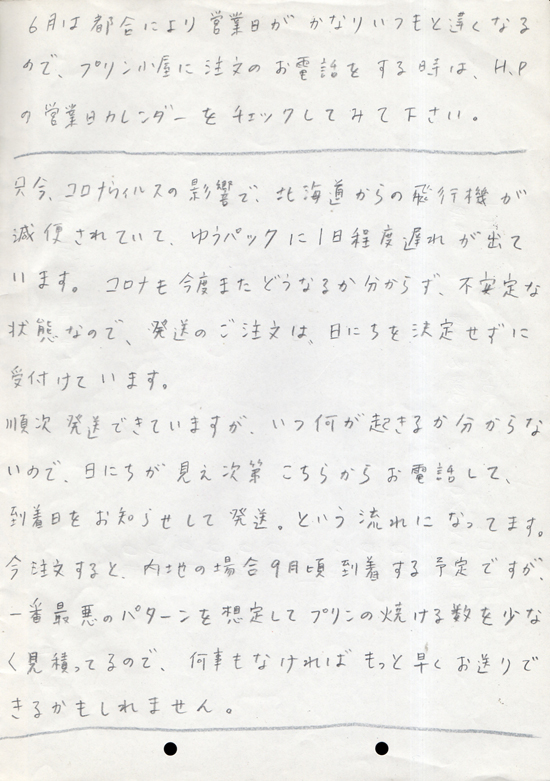 6月は都合により営業日がかなりいつもと違くなる
ので、プリン小屋に注文のお電話をする時は、H.P
の営業日カレンダーをチェックしてみて下さい。
只今、コロナウィルスの影響で、北海道からの飛行機が
減便されていて、ゆうパックに1日程度遅れが出て
います。コロナも今度またどうなるか分からず、不安定な
状態なので、発送のご注文は、日にちを決定せずに
受付けています。
順次発送できていますが、いつ何が起きるか分からな
いので、日にちが見え次第こちらからお電話して、
到着日をお知らせして発送。という流れになってます。
今注文すると、内地の場合9月頃到着する予定ですが、
一番最悪のパターンを想定してプリンの焼ける数を少な
く見積ってるので、何事もなければもっと早くお送りで
きるかもしれません。